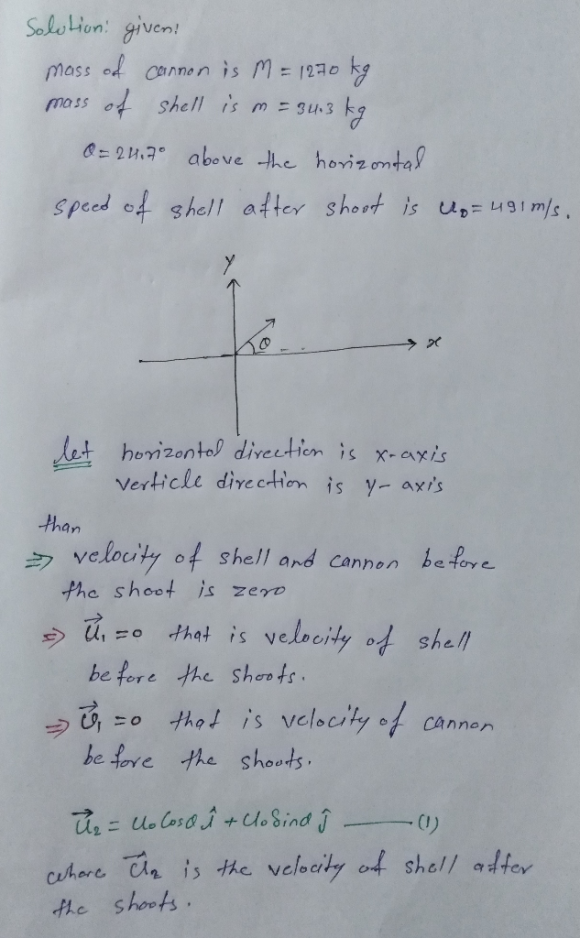 Solution: given:
mass of cannon is M = 1270 kg
mass of shell is m = 34.3 kg
θ = 24.7° above the horizontal
speed of shell after shoot is u₀ = 491 m/s.
y
θ
x
let horizontal direction is x-axis
verticle direction is y-axis
than
⇒ velocity of shell and cannon before
the shoot is zero
⇒ u⃗₁ = 0 that is velocity of shell
before the shoots.
⇒ v⃗₁ = 0 that is velocity of cannon
before the shoots.
u⃗₂ = u₀ cosθ î + u₀ sinθ ĵ —— (1)
where u⃗₂ is the velocity of shell after
the shoots.